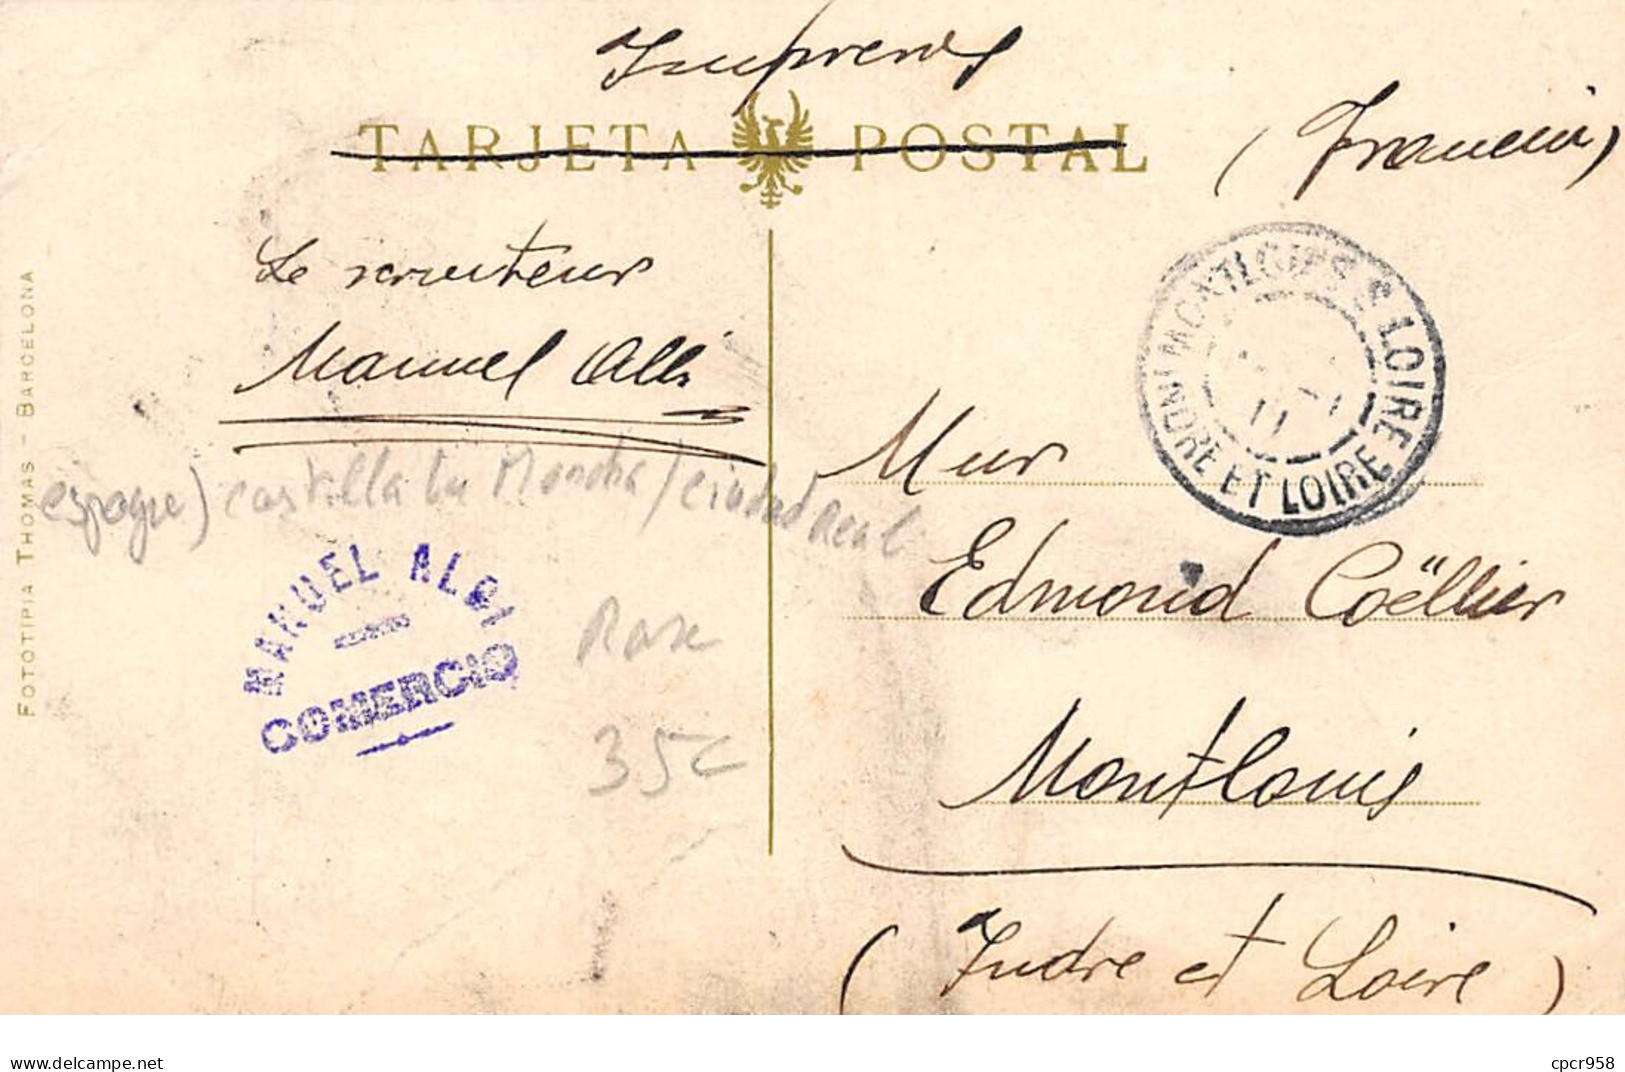 Impreres
TARJETA POSTAL
(Francia)
Le recruteur
Manuel Albi
MONTLOUIS S. LOIRE
INDRE ET LOIRE
11
Mur
Edmond Coëllier
Montlouis
(Indre et Loire)
espagne) castilla la Mancha / ciudad Real
MANUEL ALBI
COMERCIO
Rare
35€
FOTOTIPIA THOMAS - BARCELONA
delcampe.net
cpcr958